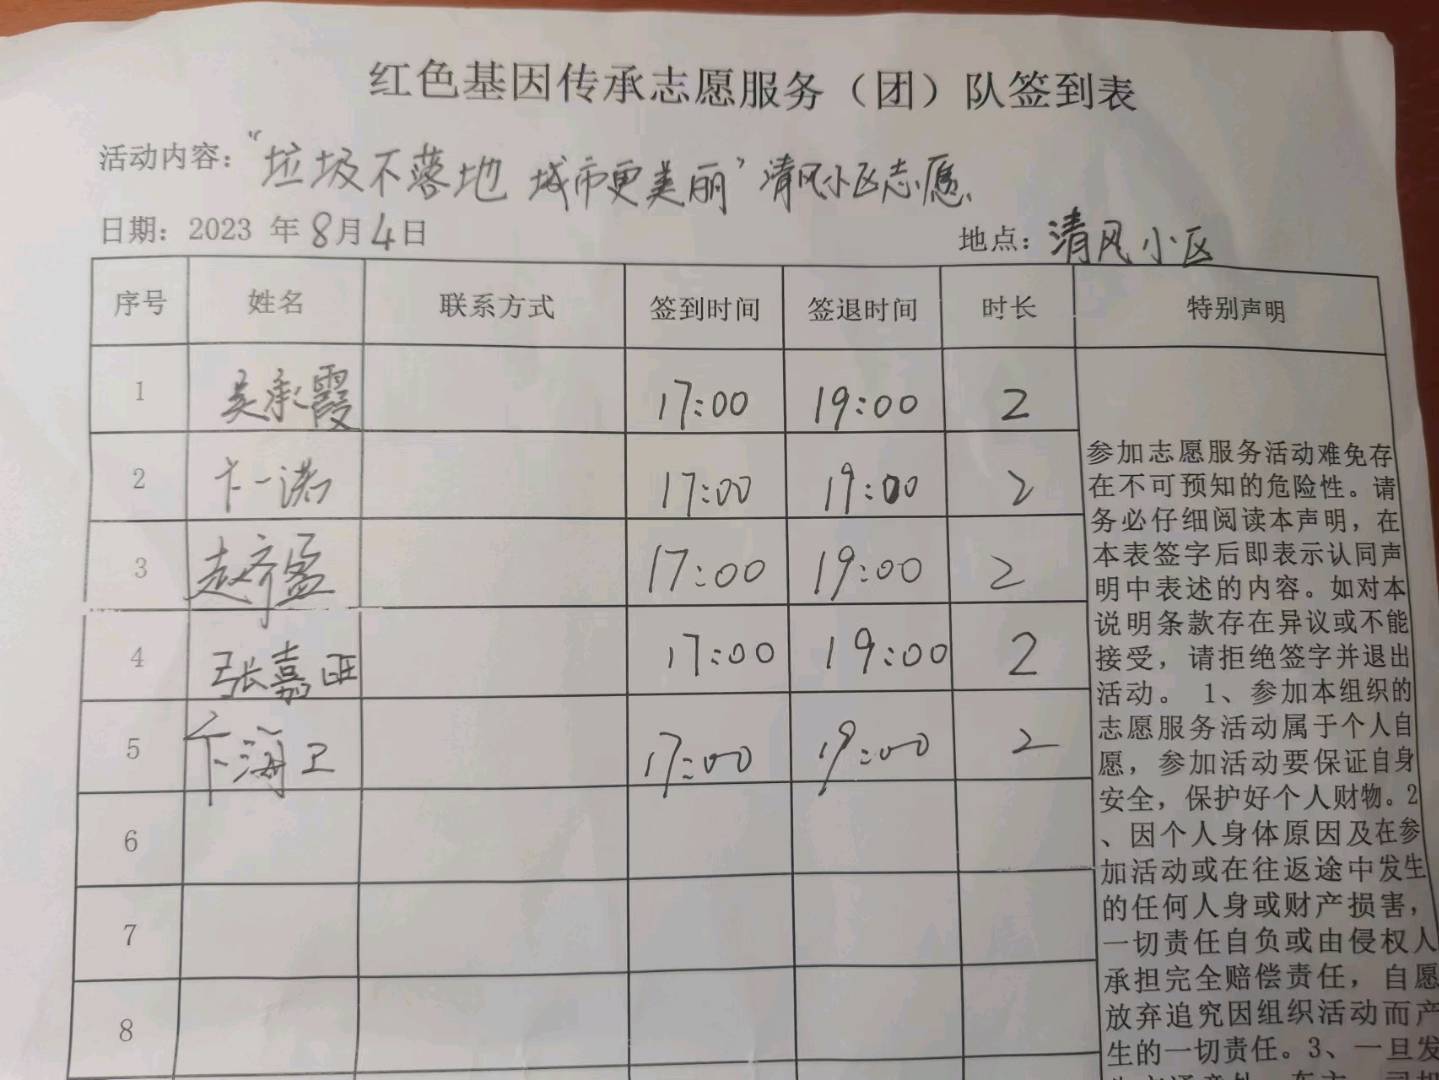 红色基因传承志愿服务（团）队签到表
活动内容：“垃圾不落地 城市更美丽”清风小区志愿
日期：2023 年8月4日 地点：清风小区
序号 姓名 联系方式 签到时间 签退时间 时长 特别声明
1 吴承霞 17:00 19:00 2
2 卞一诺 17:00 19:00 2
3 赵齐盈 17:00 19:00 2
4 张嘉旺 17:00 19:00 2
5 卞海卫 17:00 19:00 2
6
7
8
参加志愿服务活动难免存
在不可预知的危险性。请
务必仔细阅读本声明，在
本表签字后即表示认同声
明中表述的内容。如对本
说明条款存在异议或不能
接受，请拒绝签字并退出
活动。 1、参加本组织的
志愿服务活动属于个人自
愿，参加活动要保证自身
安全，保护好个人财物。2
、因个人身体原因及在参
加活动或在往返途中发生
的任何人身或财产损害，
一切责任自负或由侵权人
承担完全赔偿责任，自愿
放弃追究因组织活动而产
生的一切责任。3、一旦发